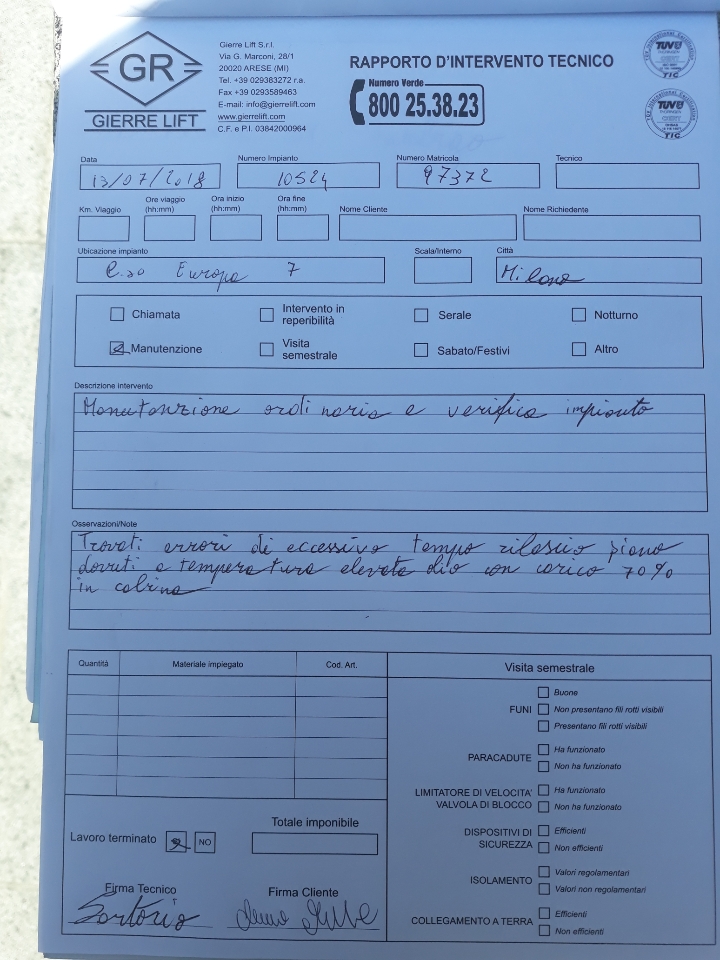 GR
GIERRE LIFT
Gierre Lift S.r.l.
Via G. Marconi, 28/1
20020 ARESE (MI)
Tel. +39 029383272 r.a.
Fax +39 0293589463
E-mail: info@gierrelift.com
www.gierrelift.com
C.F. e P.I. 03842000964
RAPPORTO D'INTERVENTO TECNICO
Numero Verde
800 25.38.23
TÜV
TIC
TÜV
TIC
Data
13/07/2018
Numero Impianto
10524
Numero Matricola
97372
Tecnico
Km. Viaggio
Ore viaggio (hh:mm)
Ora inizio (hh:mm)
Ora fine (hh:mm)
Nome Cliente
Nome Richiedente
Ubicazione impianto
C.so Europa 7
Scala/Interno
Città
Milano
Chiamata
Intervento in reperibilità
Serale
Notturno
Manutenzione
Visita semestrale
Sabato/Festivi
Altro
Descrizione intervento
Manutenzione ordinaria e verifica impianto
Osservazioni/Note
Trovati errori di eccessivo tempo rilascio piano
dovuti a temperatura elevata olio con carico 70%
in cabina
Quantità
Materiale impiegato
Cod. Art.
Visita semestrale
FUNI
Buone
Non presentano fili rotti visibili
Presentano fili rotti visibili
PARACADUTE
Ha funzionato
Non ha funzionato
LIMITATORE DI VELOCITA'
VALVOLA DI BLOCCO
Ha funzionato
Non ha funzionato
DISPOSITIVI DI
SICUREZZA
Efficienti
Non efficienti
ISOLAMENTO
Valori regolamentari
Valori non regolamentari
COLLEGAMENTO A TERRA
Efficienti
Non efficienti
Lavoro terminato
NO
Totale imponibile
Firma Tecnico
Sartorio
Firma Cliente